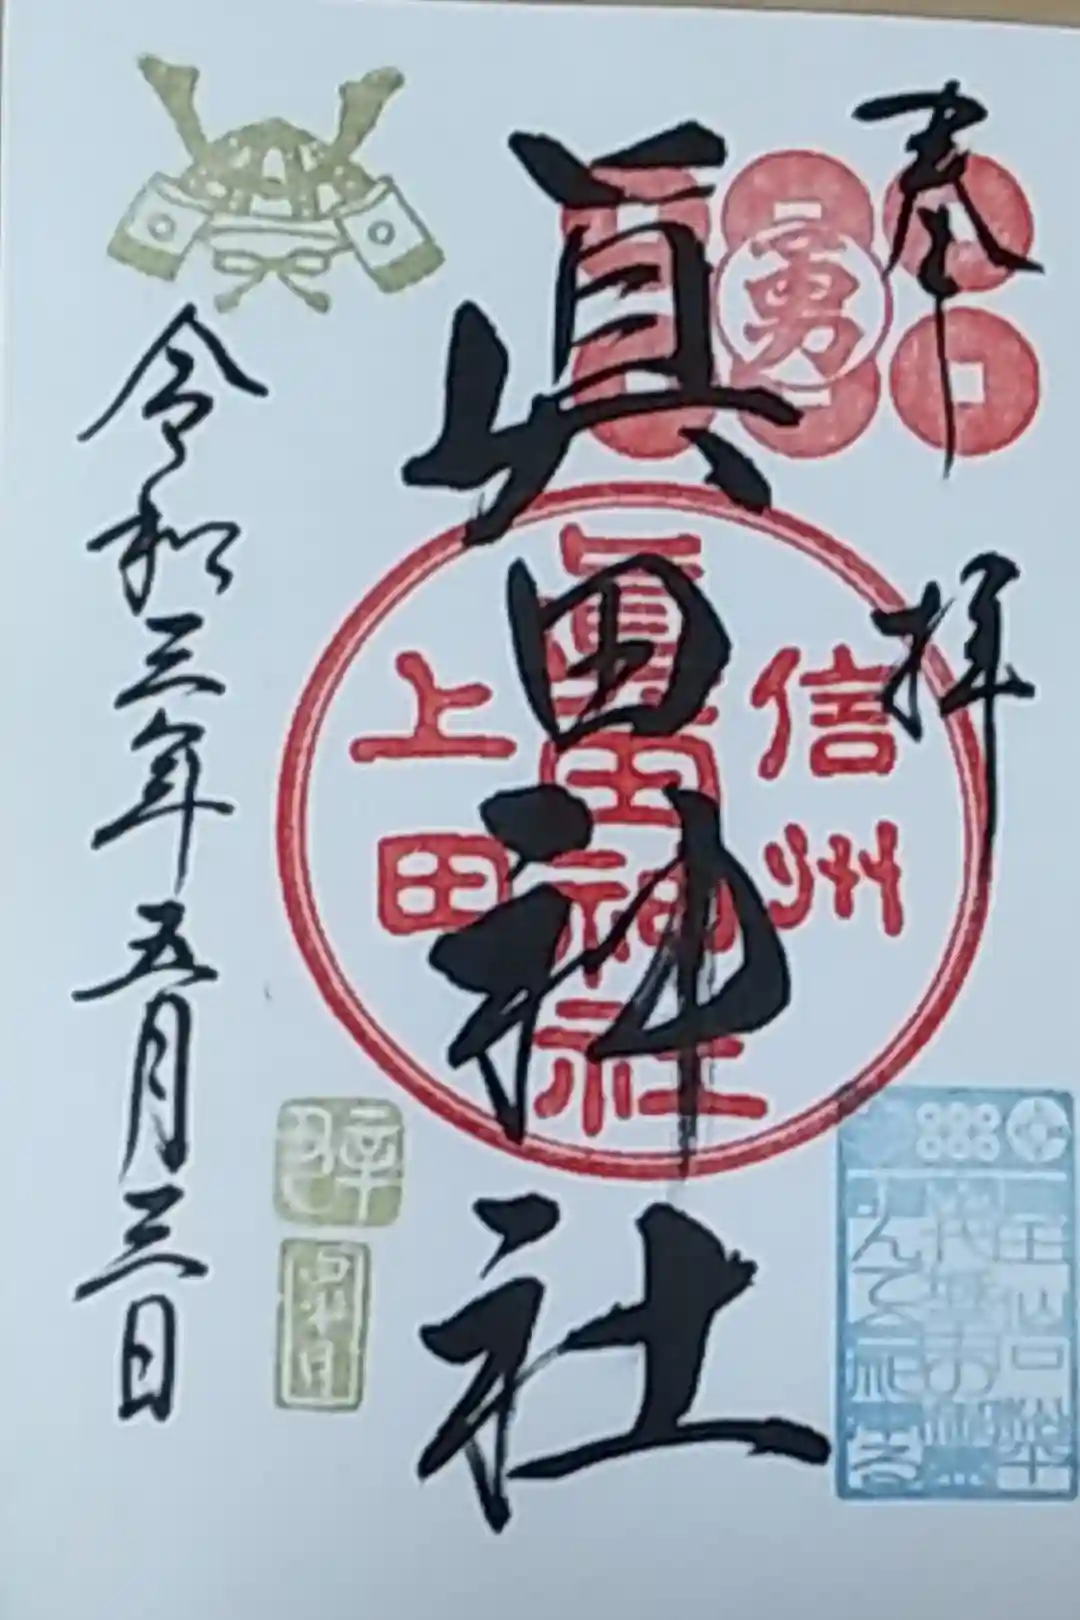 奉拝
勇
眞田神社
信州
眞田神社
上田
令和三年五月三日
辛